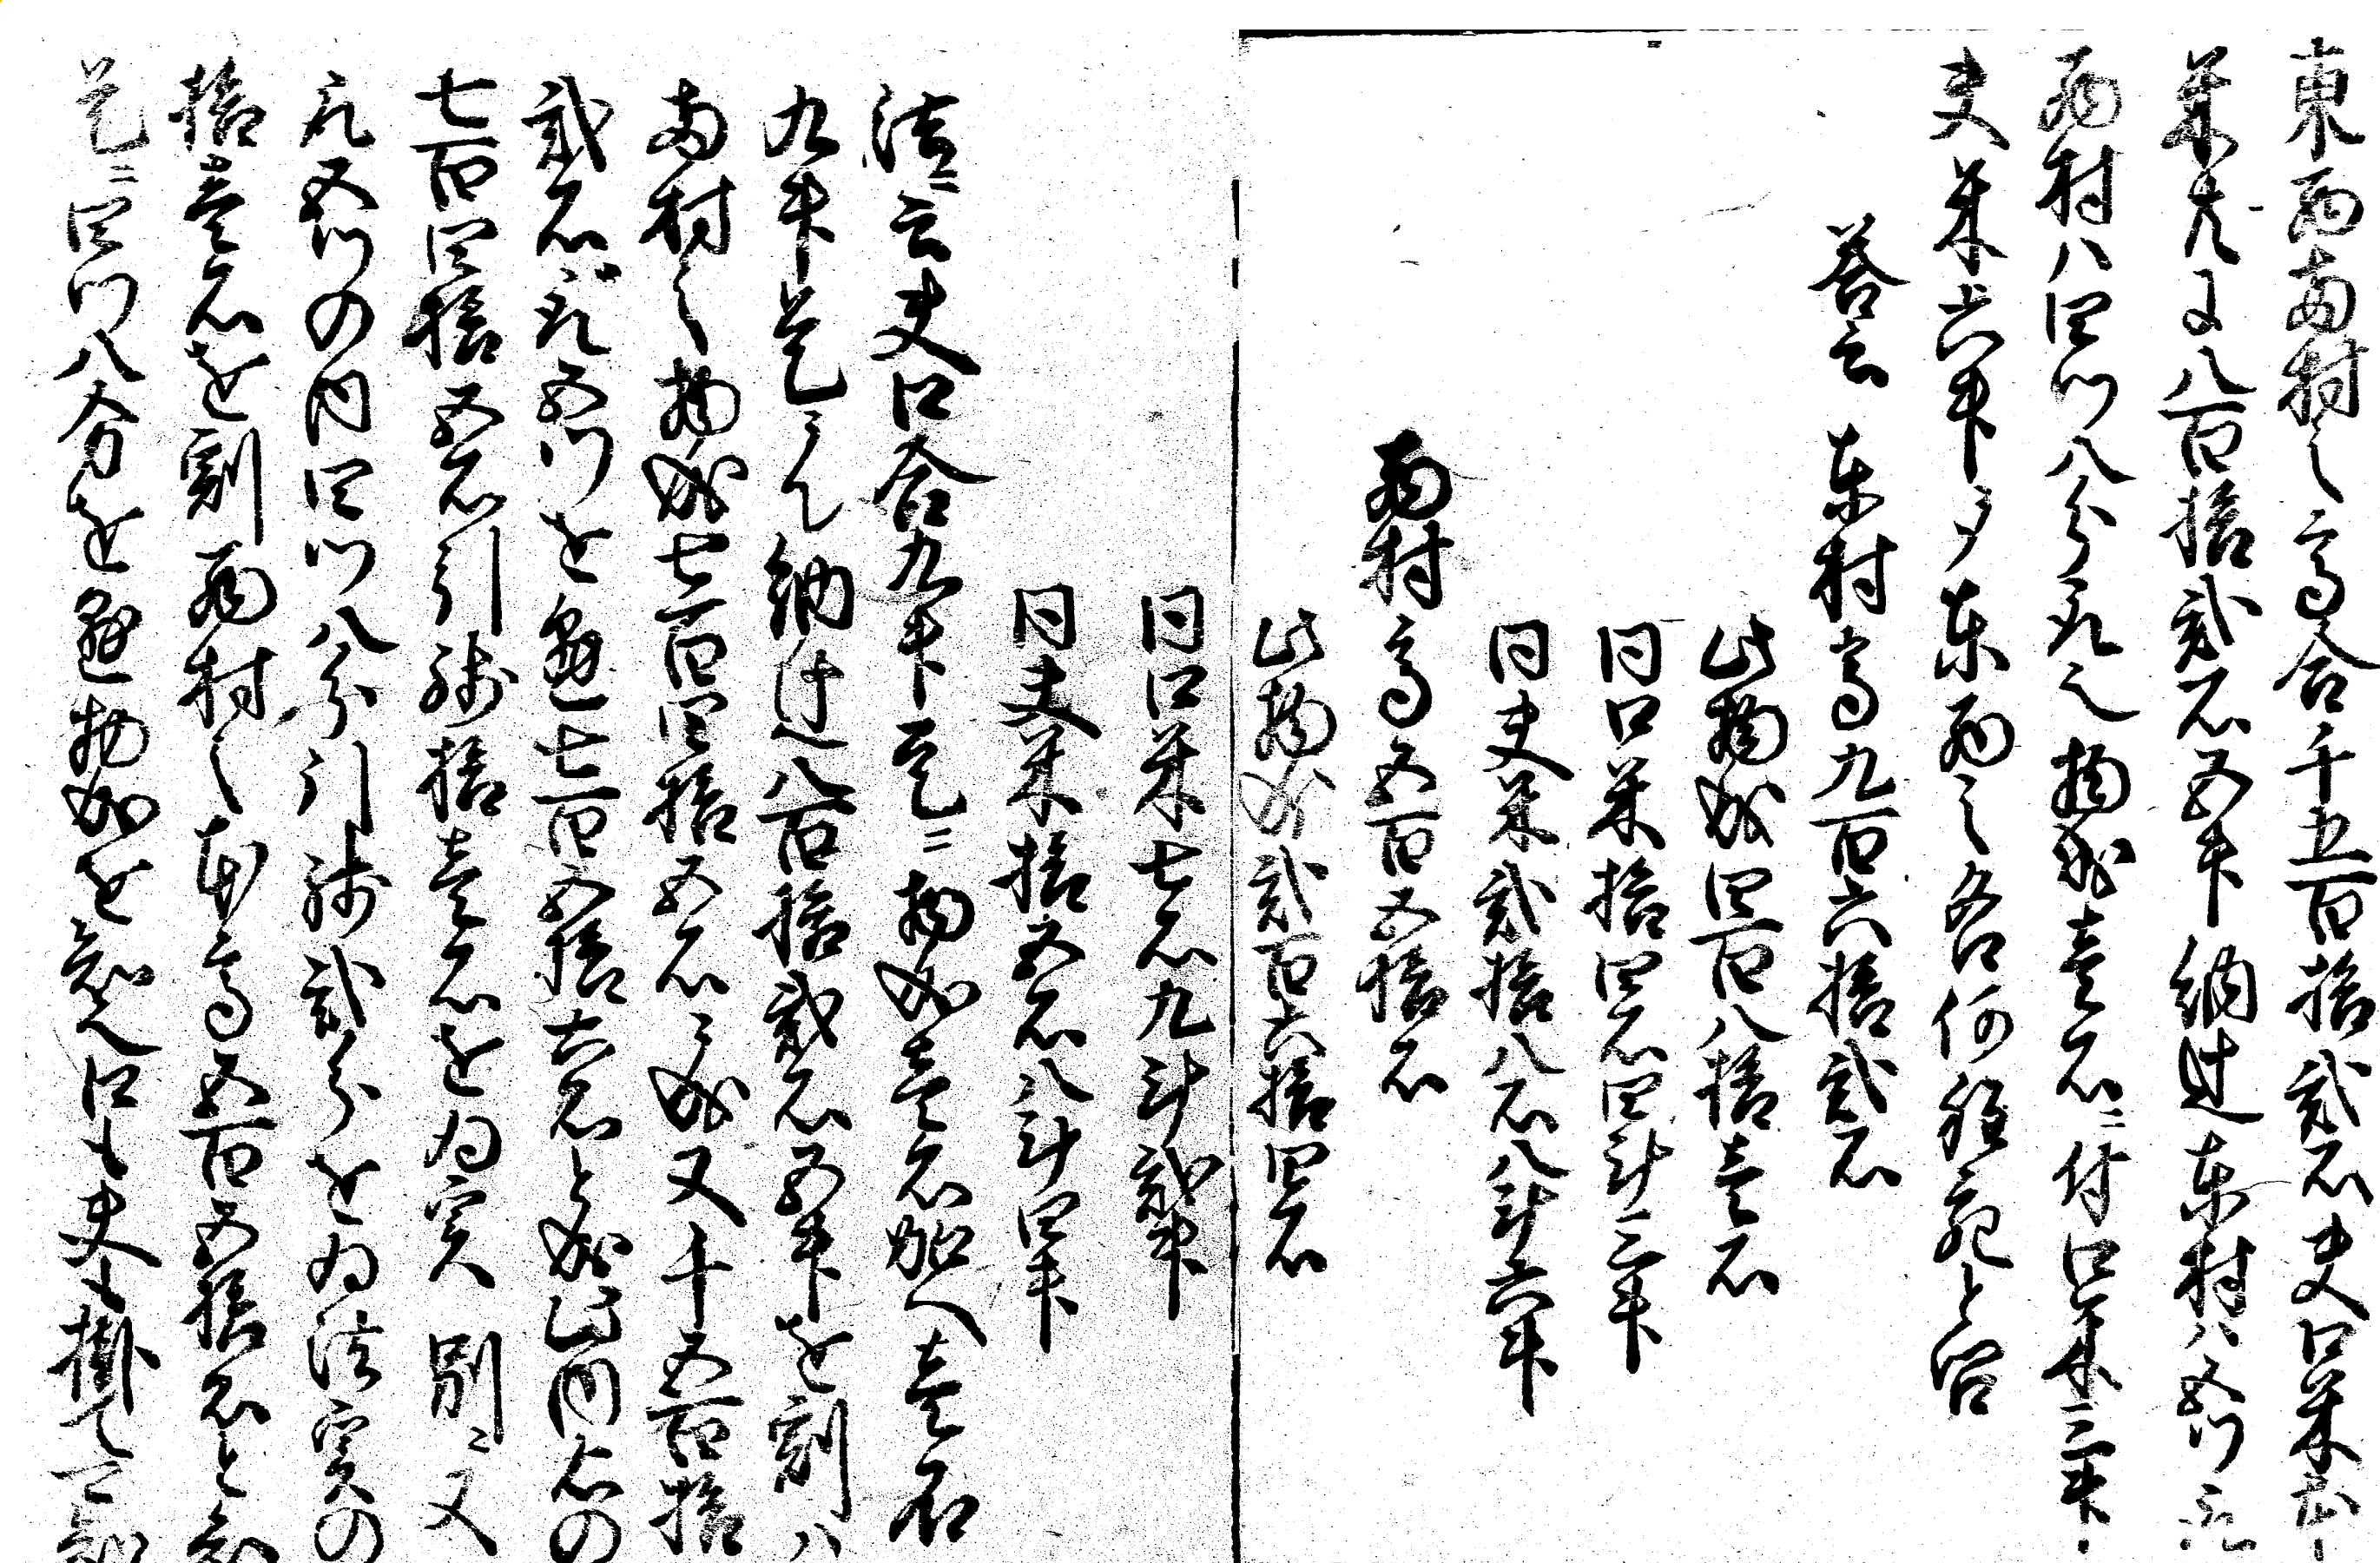 東西両村之高合千五百拾弐石夫口米本
米共ニ八百拾弐石五斗納辻東村ハ五ツ取
西村ハ四ツ八分取之物成壱石ニ付口米三斗
夫米六斗ヅヽ東西之各何程宛と問
答云 東村高九百六拾弐石
此物成四百八拾壱石
同口米拾四石四斗三升
同夫米弐拾八石八斗六升
西村高五百五拾石
此物成弐百六拾四石
同口米七石九斗弐升
同夫米拾五石八斗四升
法ニ云夫口合九升是ニ物成壱石加へ壱石
九升是ニて納辻八百拾弐石五斗を割ハ
両村之物成七百四拾五石ニ成又千五百拾
弐石ニ取五ツを懸七百五拾六石と成此内右の
七百四拾五石引残拾壱石を為実 別ニ又
取五ツの内四ツ八分引残弐分を為法実の
拾壱石を割西村之本高五百五拾石と知
是ニ四ツ八分を懸物成を知ル口も夫も掛て可知